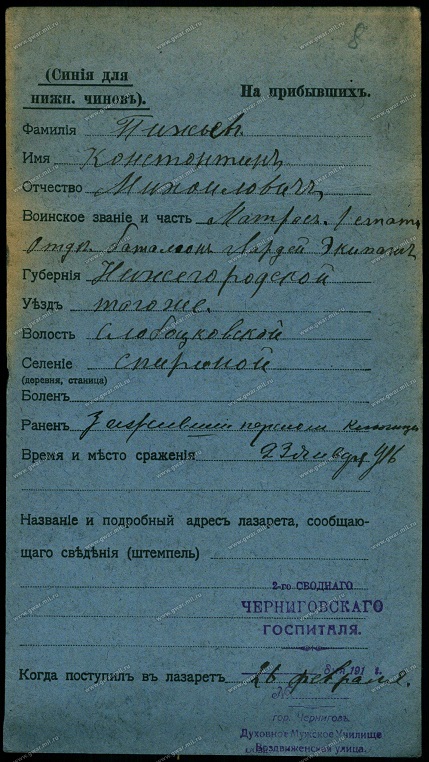 8
(Синія для
нижн. чиновъ).
На прибывшихъ.
Фамилія Пижьевъ
Имя Константинъ
Отчество Михаиловичъ
Воинское званіе и часть Матросъ 1 статьи
Отдѣл. баталіонъ гвардей Экипажъ
Губернія Нижегородской
Уѣздъ тогоже.
Волость Слободковской
Селеніе
(деревня, станица)
Боленъ
Раненъ Заживший перелом
Время и мѣсто сраженія 23 января 916
Названіе и подробный адресъ лазарета, сообщаю-
щаго свѣдѣнія (штемпель)
2-го СВОДНАГО
ЧЕРНИГОВСКАГО
ГОСПИТАЛЯ.
191 г.
Когда поступилъ въ лазаретъ 26 февраля.
№
гор. Черниговъ.
Духовное Мужское Училище
Воздвиженская улица.